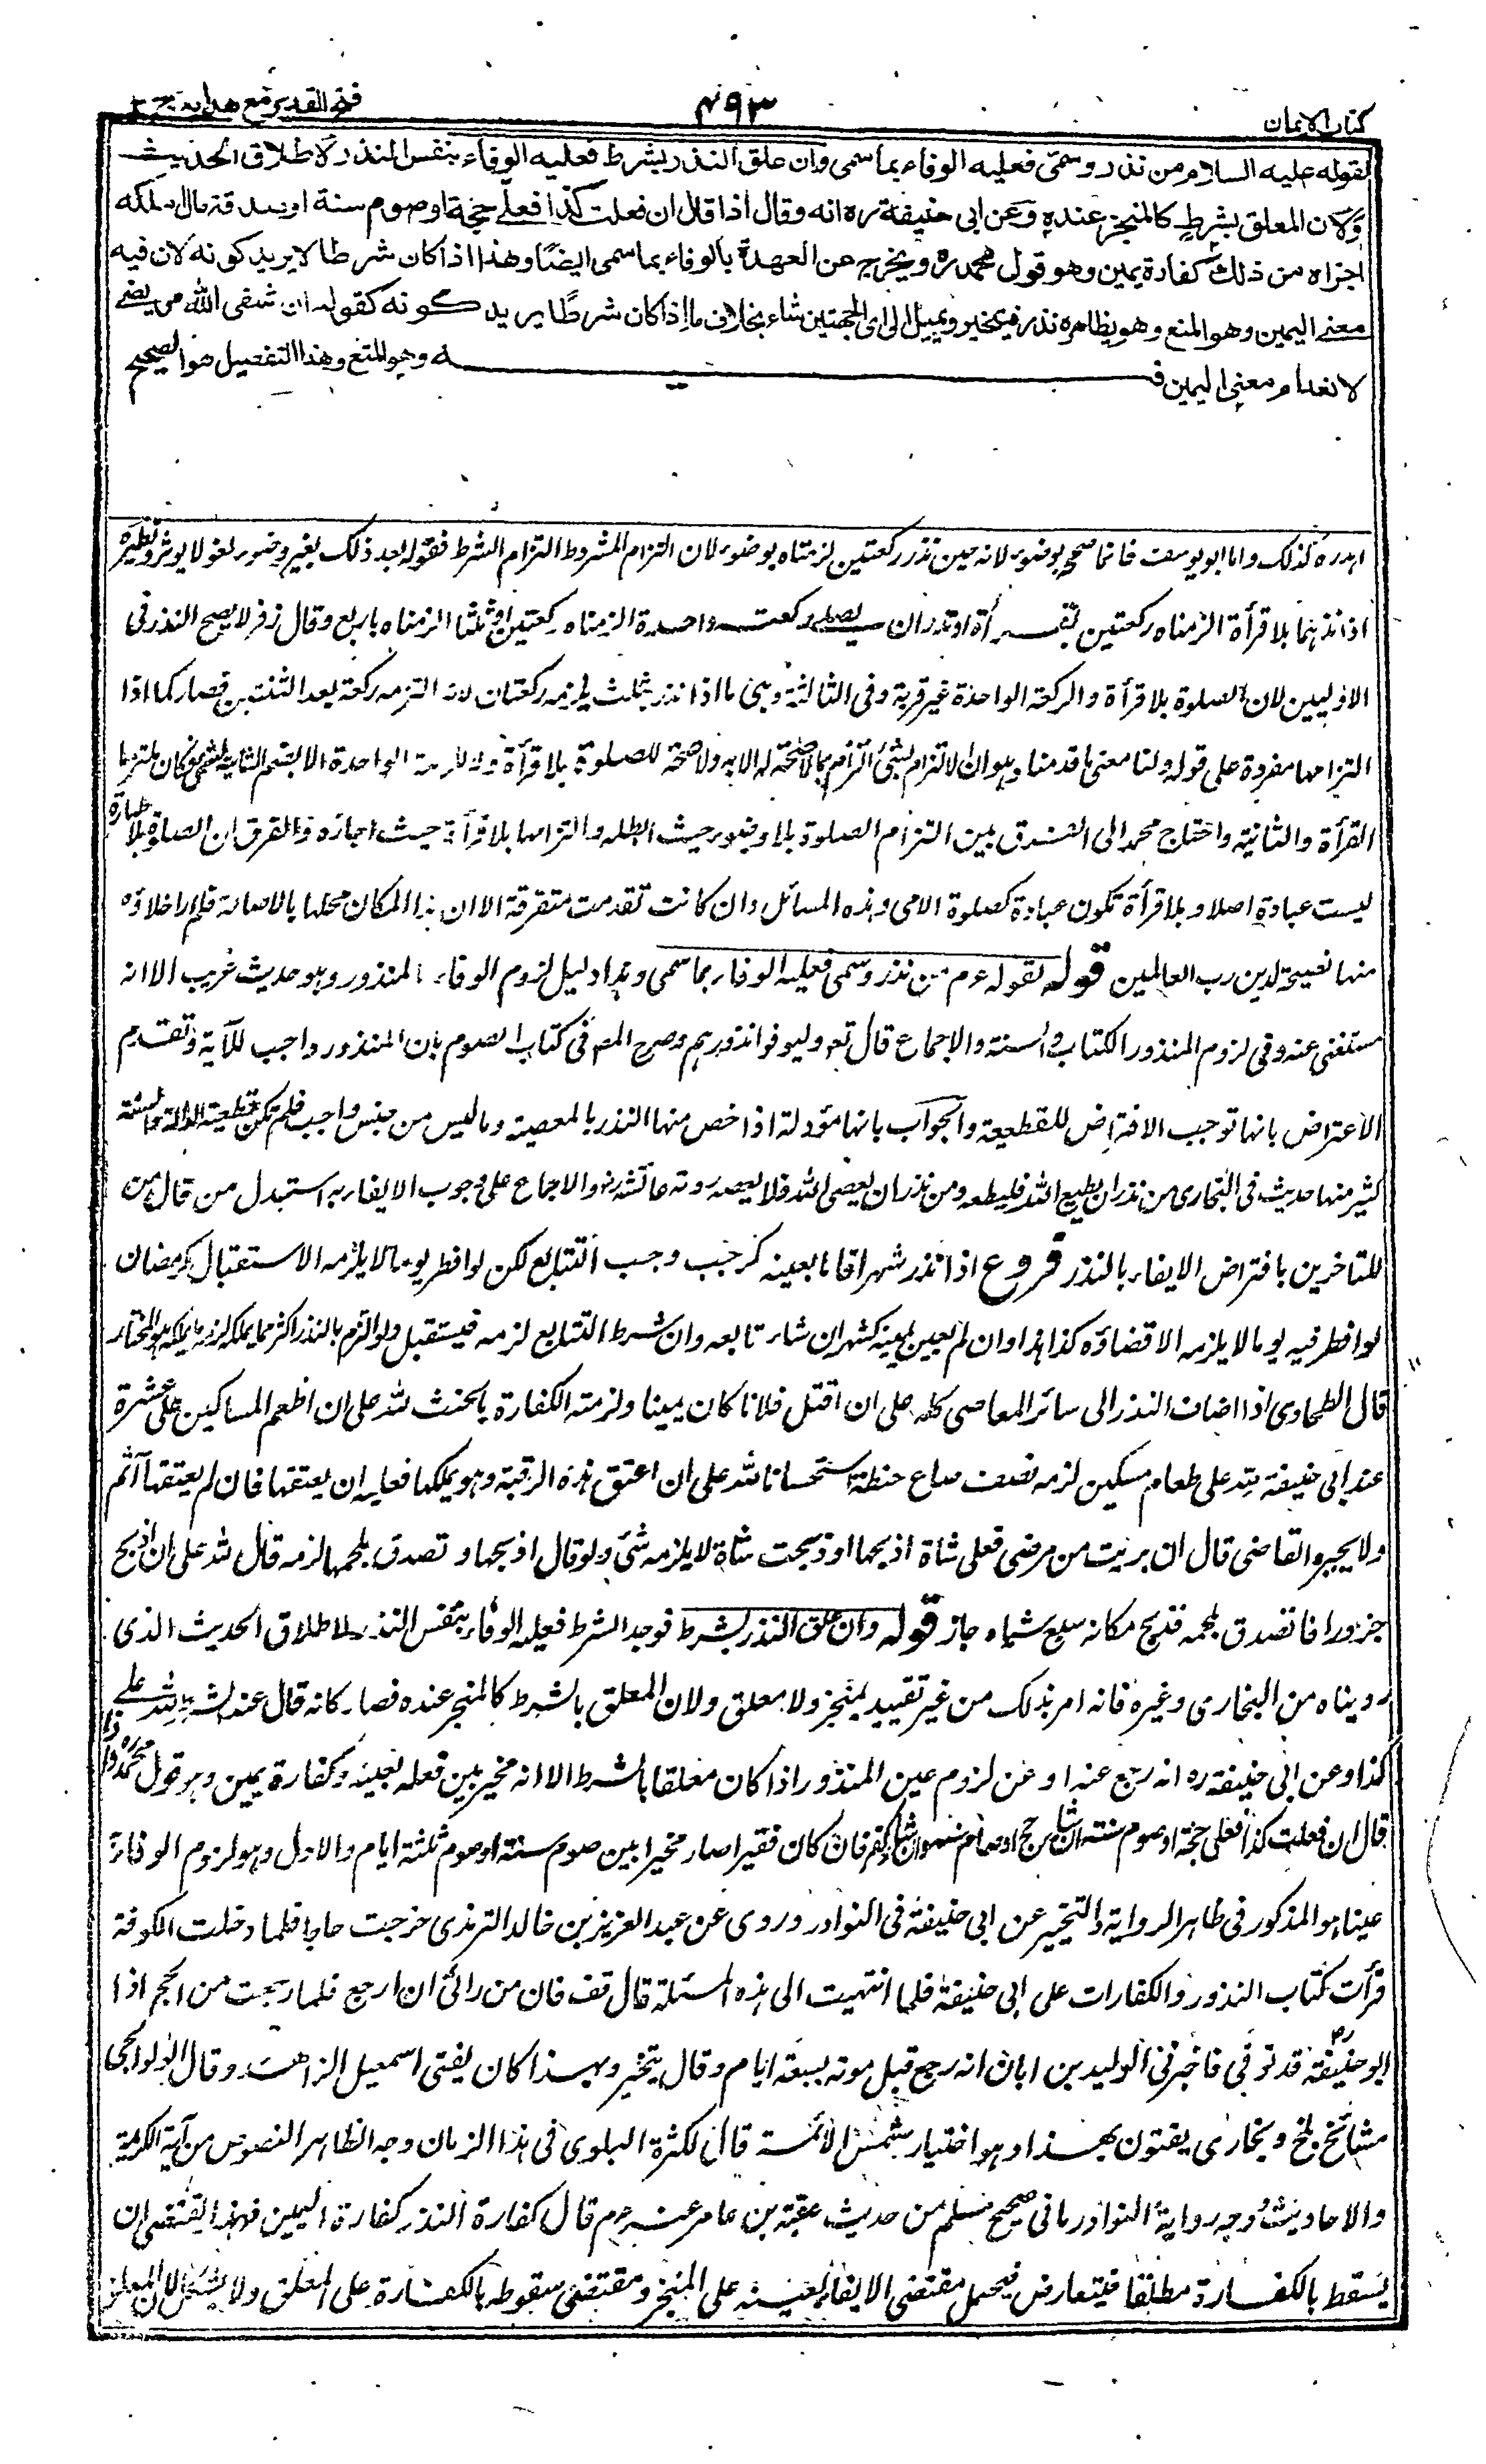 كتاب الايمان
٤٩٣
فتح القدير مع هدايه ج ٢
لقوله عليه السلام من نذر وسمّى فعليه الوفاء بما سمى وان علق النذر بشرط فعليه الوفاء بنفس النذر لاطلاق الحديث
ولان المعلق بشرط كالمنجز عنده وعن ابى حنيفة ره انه وقال اذا قال ان فعلت كذا فعلى حجة او صوم سنة او صدقة مال املكه
اجزاه من ذلك كفارة يمين وهو قول محمد ره ويخرج عن العهدة بالوفاء بما سمى ايضًا وهذا اذا كان شرطا لا يريد كونه لان فيه
معنى اليمين وهو المنع وهو بظاهره نذر فيتخير ويميل الى اى الجهتين شاء بخلاف ما اذا كان شرطًا يريد كونه كقوله ان شفى الله مريضى
لانعدام معنى اليمين فيه وهو المنع وهذا التفصيل هو الصحيح
اهدره كذلك واما ابو يوسف فانما صححه بوضوء لانه حين نذر ركعتين لزمتاه بوضوء لان التزام المشروط التزام الشرط فقوله بعد ذلك بغير وضوء لغو لا يوثر ونظيره
اذا نذرهما بلا قرأة الزمناه ركعتين بقرأة او نذر ان يصلى ركعت واحدة الزمناه ركعتين او ثلثا الزمناه باربع وقال زفر لا يصح النذر فى
الاوليين لان الصلوة بلا قرأة والركعة الواحدة غير قربة وفى الثالثة وهى ما اذا نذر بثلث يلزمه ركعتان لانه التزمه ركعة بعد الثنتين فصار كما اذا
التزامها مفردة على قوله ولنا معنى ما قدمنا وهو ان الالتزام بشئ التزام بما لا صحة له الا به ولا صحة للصلوة بلا قرأة ولا للركعة الواحدة الا بضم الثانية فكان ملتزما
القرأة والثانية واحتاج محمد الى الفرق بين التزام الصلوة بلا وضوء حيث ابطله والتزامها بلا قرأة حيث اجازه والفرق ان الصلوة بلا طهارة
ليست عبادة اصلا وبلا قرأة تكون عبادة كصلوة الامى وهذه المسائل وان كانت تقدمت متفرقة الا ان هذا المكان محلها بالاصالة فلم ار اخلاؤه
منها نصيحة لدين رب العالمين قوله لقوله عم من نذر وسمى فعليه الوفاء بما سمى وهذا دليل لزوم الوفاء بالمنذور وهو حديث غريب الا انه
مستغنى عنه وفى لزوم المنذور الكتاب والسنة والاجماع قال تع وليوفوا نذورهم وصرح المص فى كتاب الصوم بان المنذور واجب للآية وتقدم
الاعتراض بانها توجب الافتراض للقطعية والجواب بانها مؤولة اذا خص منها النذر بالمعصية وما ليس من جنس واجب فلم تكن قطعية الدلالة والسنة
كثير منها حديث فى البخارى من نذر ان يطيع الله فليطعه ومن نذر ان يعصى الله فلا يعصه روته عائشة رضه والاجماع على وجوب الايفاء به استدل من قال من
المتاخرين بافتراض الايفاء بالنذر فروع اذا نذر شهرا فاما بعينه كرجب وجب التتابع لكن لو افطر يوما لا يلزمه الاستقبال كرمضان
لو افطر فيه يوما لا يلزمه الا قضاؤه كذا هذا وان لم يعين بعينه كشهر ان شاء تابعه وان شرط التتابع لزمه فيستقبل ولو التزم بالنذر اكثر مما يملكه لزمه ما يملكه هو المختار
قال الطحاوى اذا اضاف النذر الى سائر المعاصى كله على ان اقتل فلانا كان يمينا ولزمته الكفارة بالحنث لله على ان اطعم المساكين على عشرة
عند ابى حنيفة لله على طعام مسكين لزمه نصف صاع حنطة استحسانا لله على ان اعتق هذه الرقبة وهو يملكها فعليه ان يعتقها فان لم يعتقها آثم
ولا يجبره القاضى قال ان برئت من مرضى فعلى شاة اذبحها او ذبحت شاة لا يلزمه شئ ولو قال اذبحها وتصدق بلحمها لزمه قال لله على ان اذبح
جزورا فاتصدق بلحمه فذبح مكانه سبع شياه جاز قوله وان علق النذر بشرط فوجد الشرط فعليه الوفاء بنفس النذر لاطلاق الحديث الذى
رويناه من البخارى وغيره فانه امر بذلك من غير تقييد بمنجز ولا معلق ولان المعلق بالشرط كالمنجز عنده فصار كانه قال عند الشرط لله على
كذا وعن ابى حنيفة ره انه رجع عنه او عن لزوم عين المنذور اذا كان معلقا بالشرط الا انه مخير بين فعله بعينه وكفارة يمين وهو قول محمد ره
قال ان فعلت كذا فعلى حجة او صوم سنة ان شاء حج او صام سنة وان شاء كفر فان كان فقيرا صار مخيرا بين صوم سنة او صوم ثلثة ايام والاول وهو لزوم الوفاء به
عينا هو المذكور فى ظاهر الرواية والتخيير عن ابى حنيفة فى النوادر وروى عن عبد العزيز بن خالد الترمذى خرجت حاجا فلما دخلت الكوفة
قرأت كتاب النذور والكفارات على ابى حنيفة فلما انتهيت الى هذه المسئلة قال قف فان من رائى ان ارجع فلما رجعت من الحج اذا
ابو حنيفة ره قد توفى فاخبرنى الوليد بن ابان انه رجع قبل موته بسبعة ايام وقال يتخير وبهذا كان يفتى اسمعيل الزاهد وقال الولوالجى
مشائخ بلخ وبخارى يفتون بهذا وهو اختيار شمس الائمة قال لكثرة البلوى فى هذا الزمان وجه الظاهر النصوص من آية الكريمة
والاحاديث ووجه رواية النوادر ما فى صحيح مسلم من حديث عقبة بن عامر عنه عم قال كفارة النذر كفارة اليمين فهذا يقتضى ان
يسقط بالكفارة مطلقا فيتعارض فيحمل مقتضى الايفاء بعينه على المنجز ومقتضى سقوطه بالكفارة على المعلق ولا يشكل لان المعلق